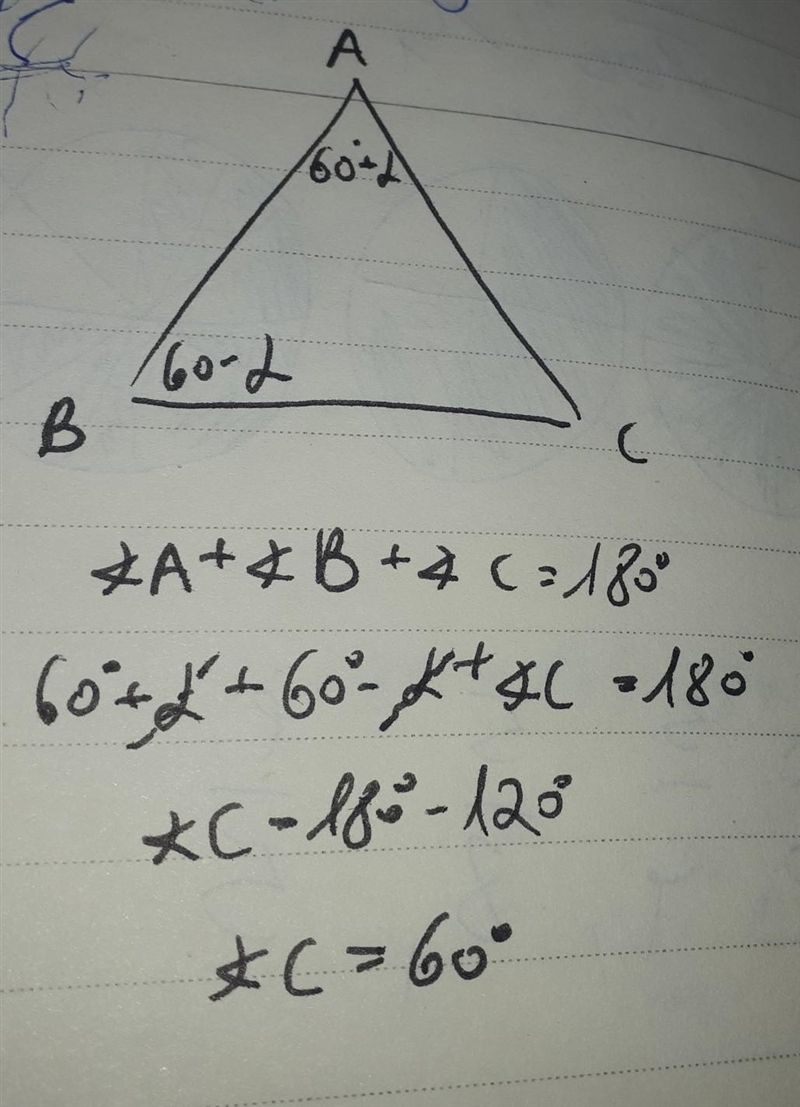 A
60°+α
60-α
B
C
∢A+∢B+∢C=180°
60°+α+60°-α+∢C=180°
∢C=180°-120°
∢C=60°